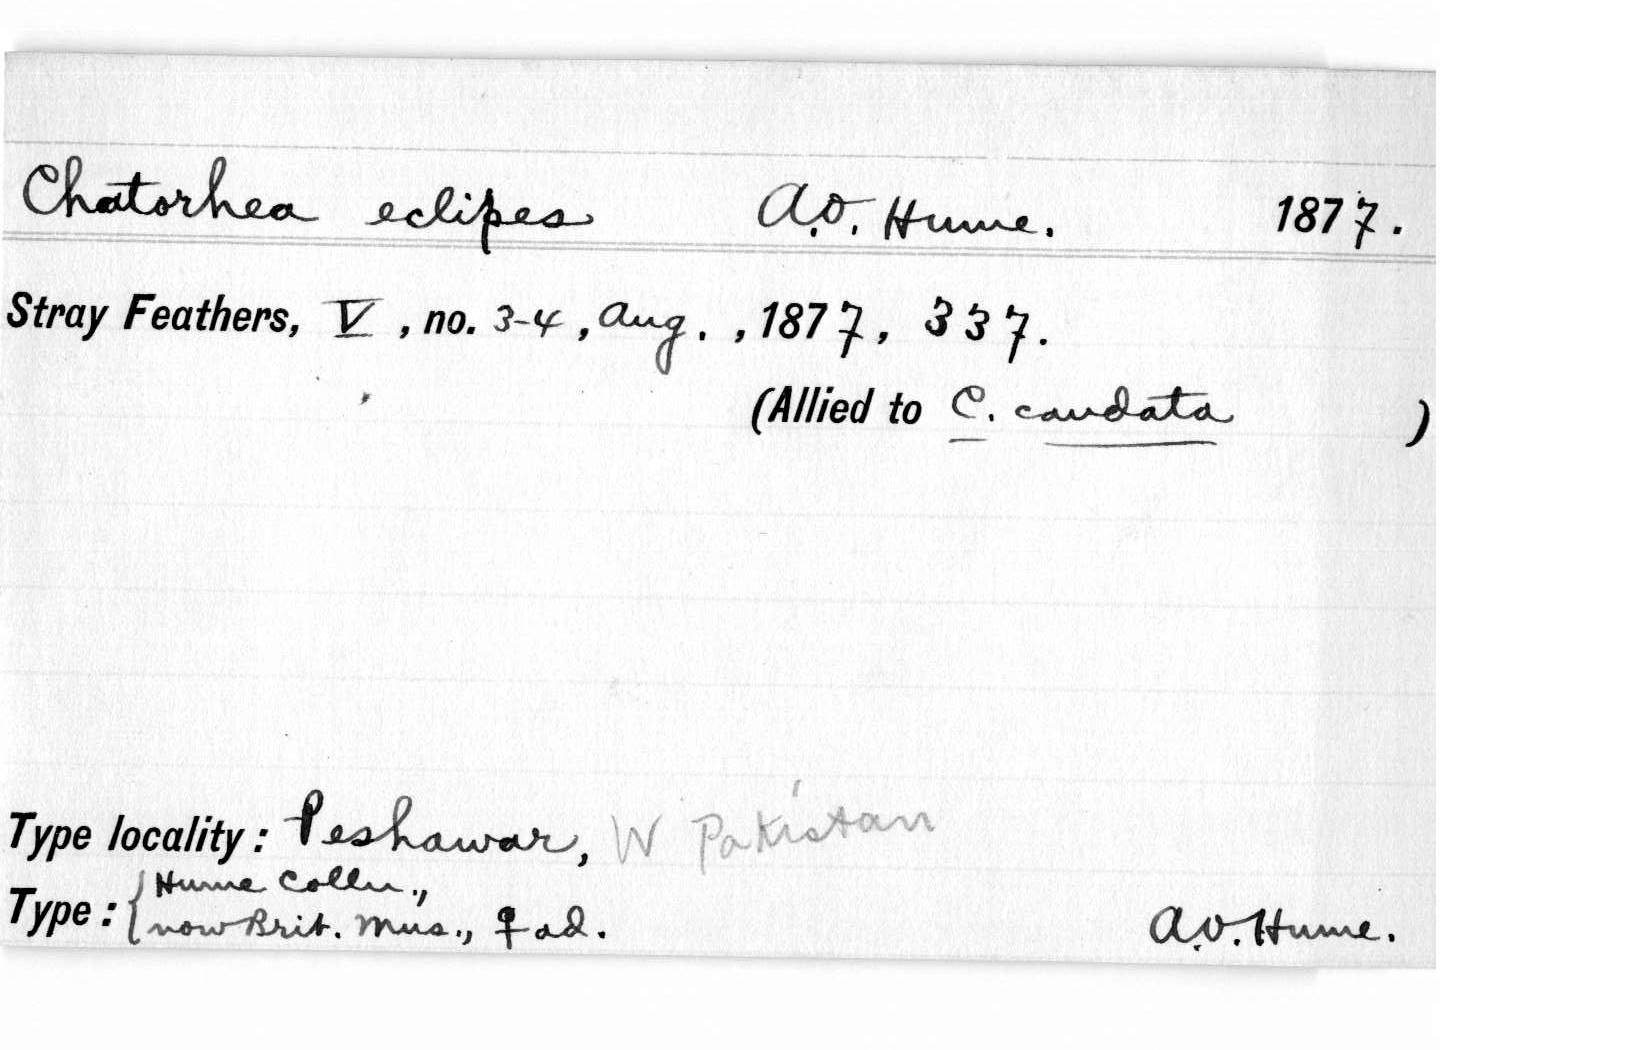 Chatorhea eclipes A.O. Hume. 1877.
Stray Feathers, V, no. 3-4, Aug., 1877, 337.
(Allied to C. caudata )
Type locality: Peshawar, W Pakistan
Type: { Hume Colln.,
now Brit. Mus., ♀ ad. A.O. Hume.